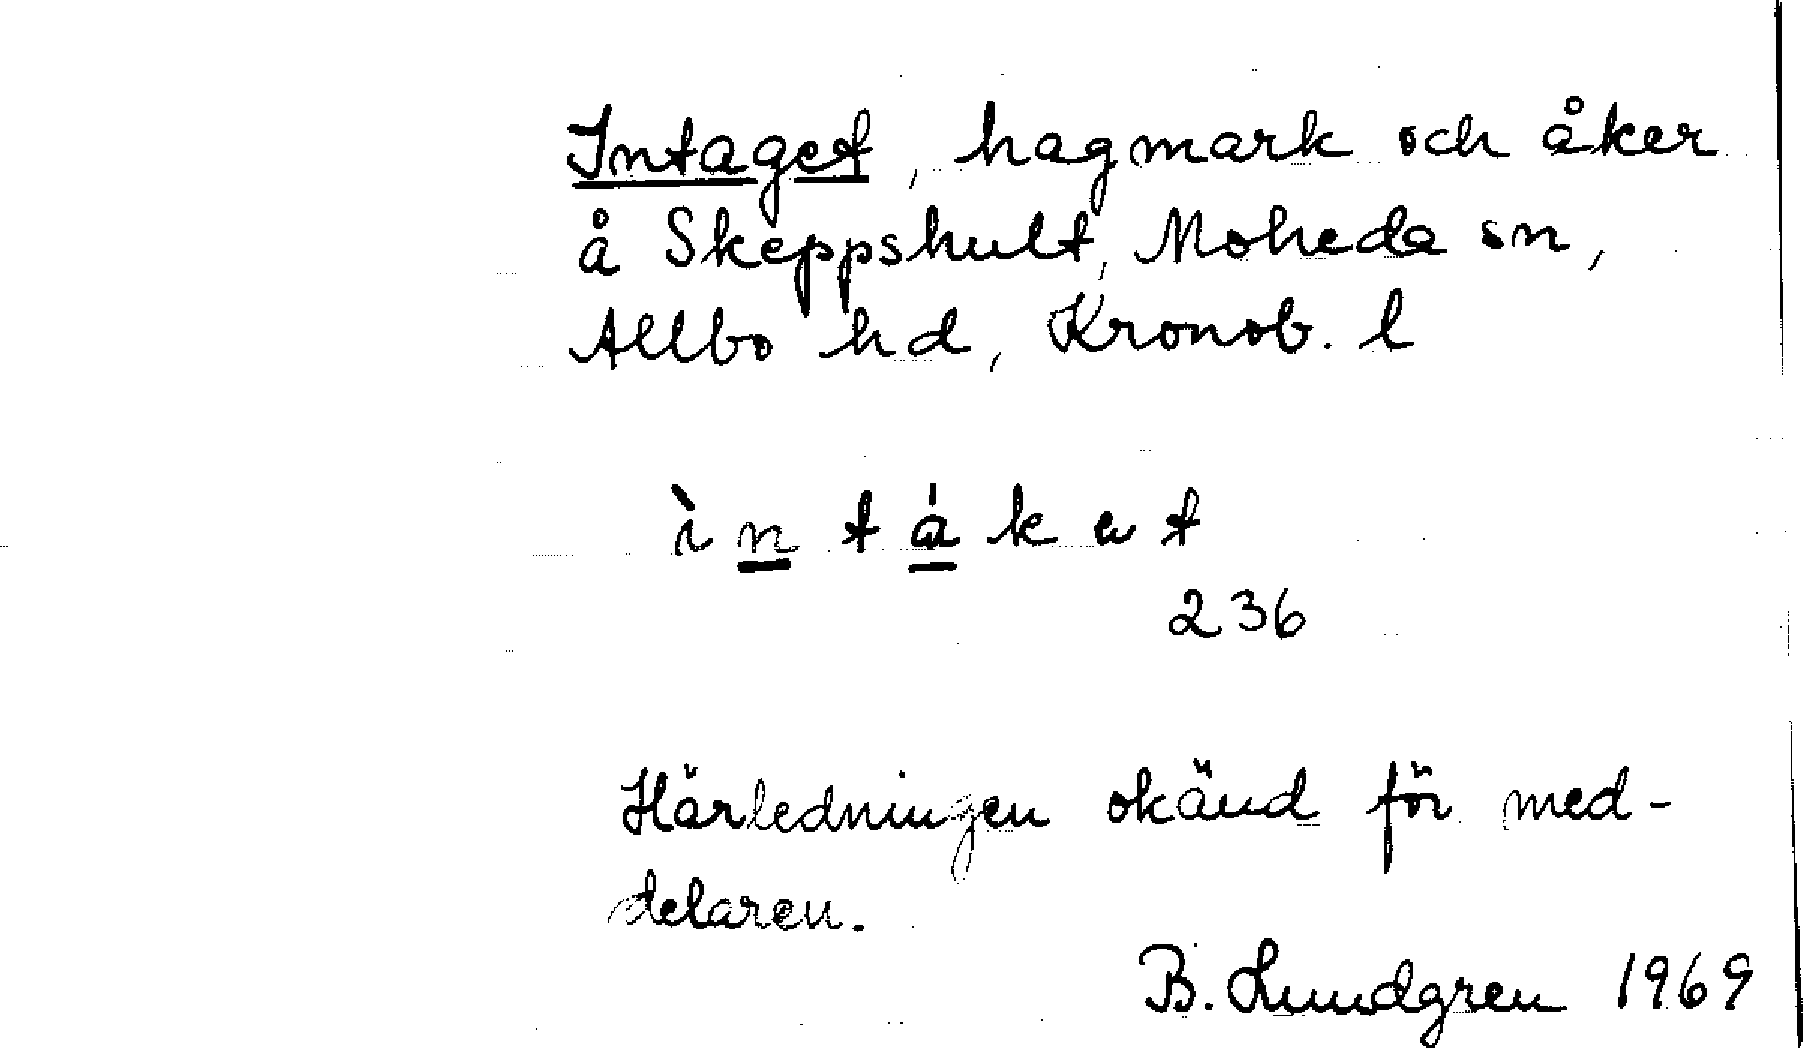 Intaget, hagmark och åker
å Skeppshult, Moheda sn,
Allbo hd, Kronob. l
ì n t á k e t
236
Härledningen okänd för med-
delaren.
B. Lundgren 1969